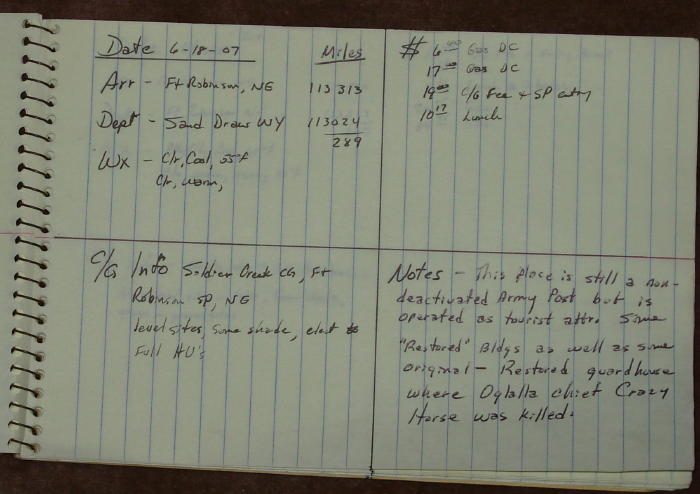 Date 6-18-07 Miles
Arr - Ft Robinson, NE 113313
Dept - Sand Draws WY 113024
289
Wx - Clr, Cool, 55°F
Clr, warm,
$ 6.00 Gas DC
17.00 Gas DC
19.00 C/G Fee + SP entry
10.17 Lunch
C/G Info Soldier Creek CG, Ft
Robinson SP, NE
level sites, some shade, elect
Full HU's
Notes - This place is still a non-
deactivated Army Post but is
operated as tourist attr. Some
"Restored" Bldgs as well as some
original - Restored guardhouse
where Oglalla chief Crazy
Horse was killed.